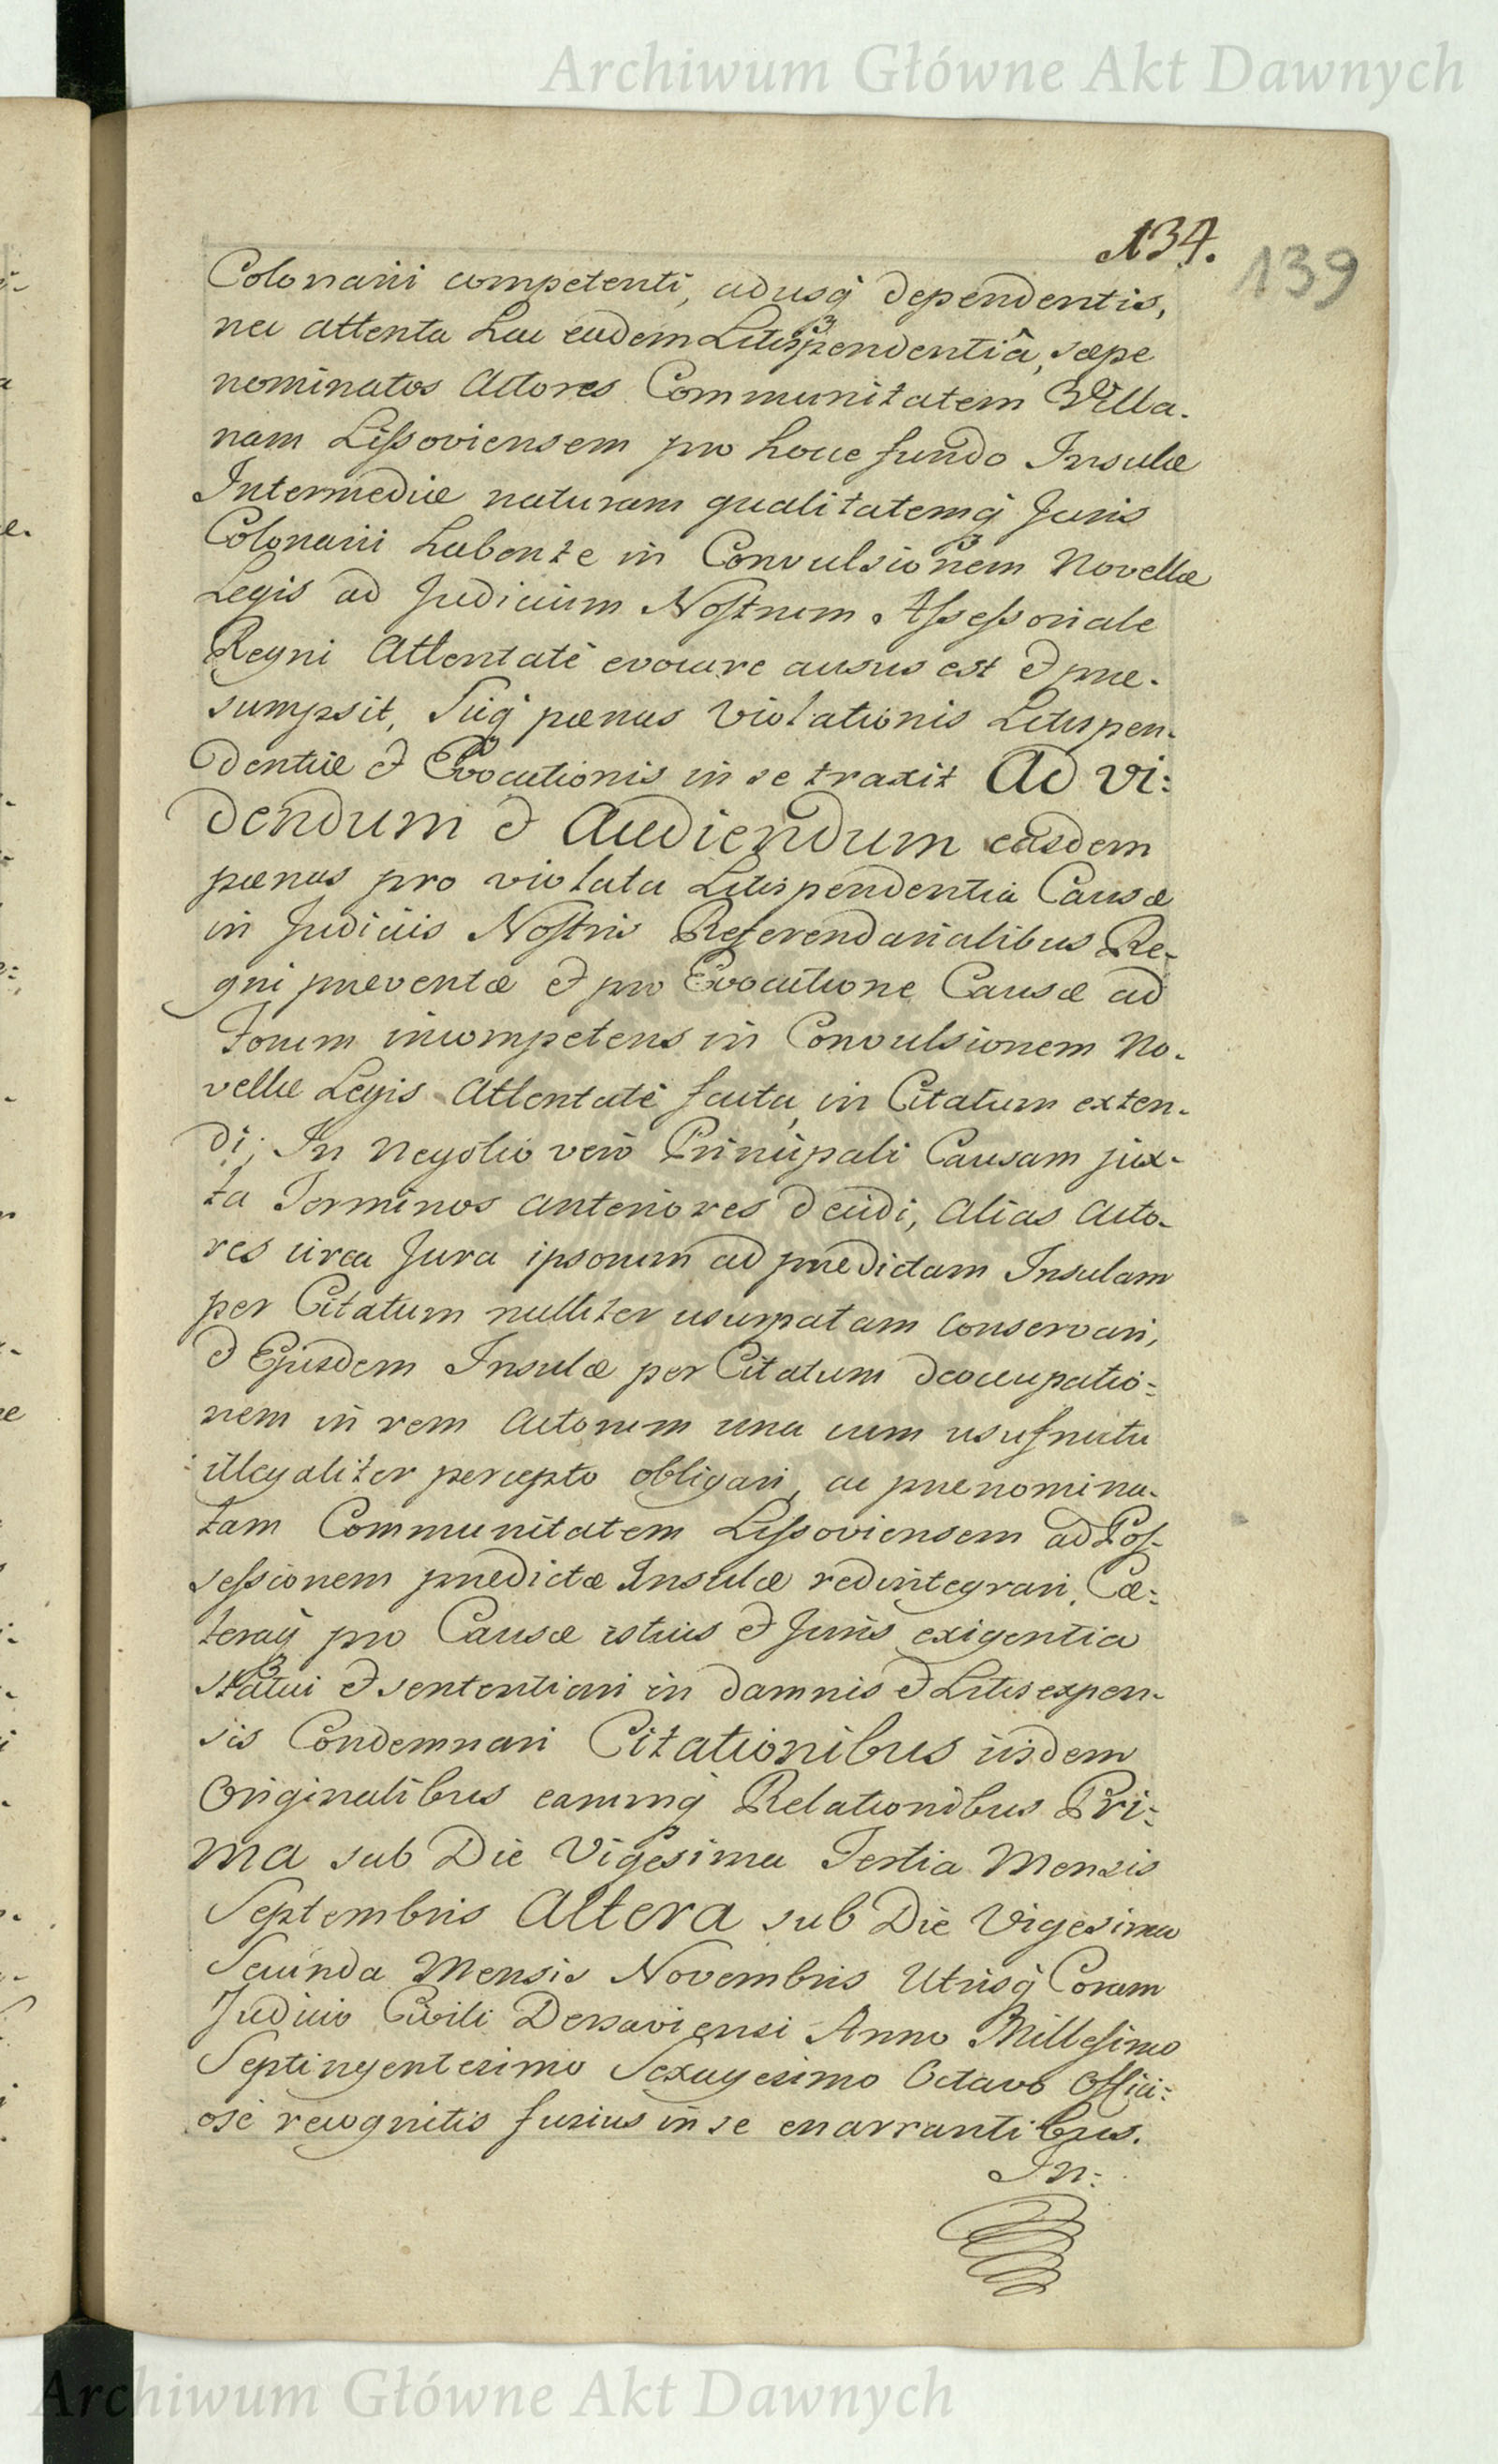 Archiwum Główne Akt Dawnych
134.
139
Colonarii competenti, adusq dependentis,
nec attenta hac eadem Litispendentiâ, sæpe
nominatos Actores Communitatem Villa-
nam Lissoviensem pro hocce fundo Insulæ
Intermediæ naturam qualitatemq Juris
Colonarii habente in Convulsionem Novellæ
Legis ad Judicium Nostrum Assessoriale
Regni Attentatè evocare ausus est et præ-
sumpsit, Sicq pænas violationis Litispen-
dentiæ et Evocationis in se traxit Ad vi:
dendum et Audiendum easdem
pænas pro violata Litispendentia Causæ
in Judiciis Nostris Referendarialibus Re-
gni præventæ et pro Evocatione Causæ ad
Forum incompetens in Convulsionem No-
vellæ Legis Attentatè facta, in Citatum exten-
di; In Negotio verò Principali Causam jux-
ta Terminos anteriores decidi, Alias Acto-
res circa Jura ipsorum ad prædictam Insulam
per Citatum nulliter usurpatam conservari,
et Ejusdem Insulæ per Citatum deoccupatio-
nem in rem Actorum una cum usufructu
illegaliter percepto obligari, ac prænomina-
tam Communitatem Lissoviensem ad Pos-
sessionem prædictæ Insulæ redintegrari, Cæ:
teraq pro Causæ istius et Juris exigentia
statui et sententiari in damnis et Litis expen-
sis Condemnari Citationibus iisdem
Originalibus earumq Relationibus Pri:
ma sub Die Vigesima Tertia Mensis
Septembris Altera sub Die Vigesima
Secunda Mensis Novembris Utrisq Coram
Judicio Civili Dersaviensi Anno Millesimo
Septingentesimo Sexagesimo Octavo Offici:
osè recognitis fusius in se enarrantibus.
In:
Archiwum Główne Akt Dawnych